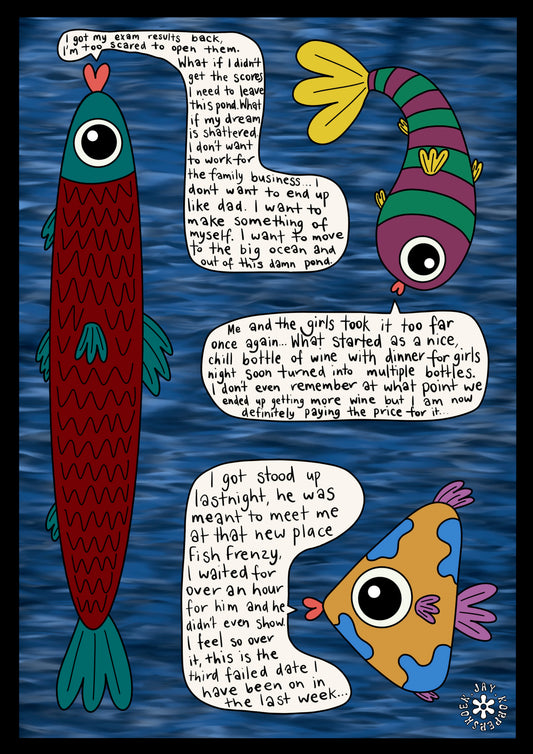 I got my exam results back,
I'm too scared to open them.
What if I didn't
get the scores
I need to leave
this pond. What
if my dream
is shattered.
I don't want
to work for
the family business... I
don't want to end up
like dad. I want to
make something of
myself. I want to move
to the big ocean and
out of this damn pond.
Me and the girls took it too far
once again... What started as a nice,
chill bottle of wine with dinner for girls
night soon turned into multiple bottles.
I don't even remember at what point we
ended up getting more wine but I am now
definitely paying the price for it...
I got stood up
lastnight, he was
meant to meet me
at that new place
Fish Frenzy,
I waited for
over an hour
for him and he
didn't even show.
I feel so over
it, this is the
third failed date I
have been on in
the last week...
JAY KORPERSHOEK